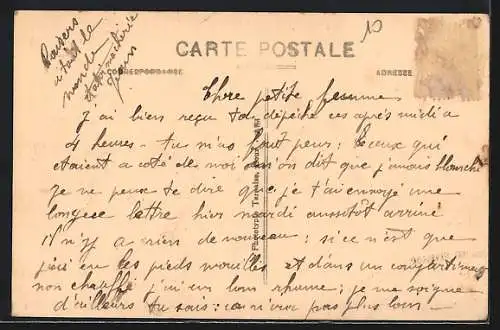 Baisers
à tout le
monde
CARTE POSTALE
CORRESPONDANCE
ADRESSE
Chere petite femme
J'ai bien reçu ta depèche ces après midi a
4 heures - tu m'as fait peur : Ceux qui
etaient a coté de moi m'on dit que j'avais blanchi
Je ne peux te dire que je t'ai envoyé une
longue lettre hier mardi aussitôt arrivé
il n'y a rien de nouveau : si ce n'est que
j'ai eu les pieds mouillés et dans un compartiment
non chauffé j'ai eu bon rhume ; je me soigne
d'ailleurs tu sais : ça n'ira pas plus loin -
Phototypie Tarnaise,